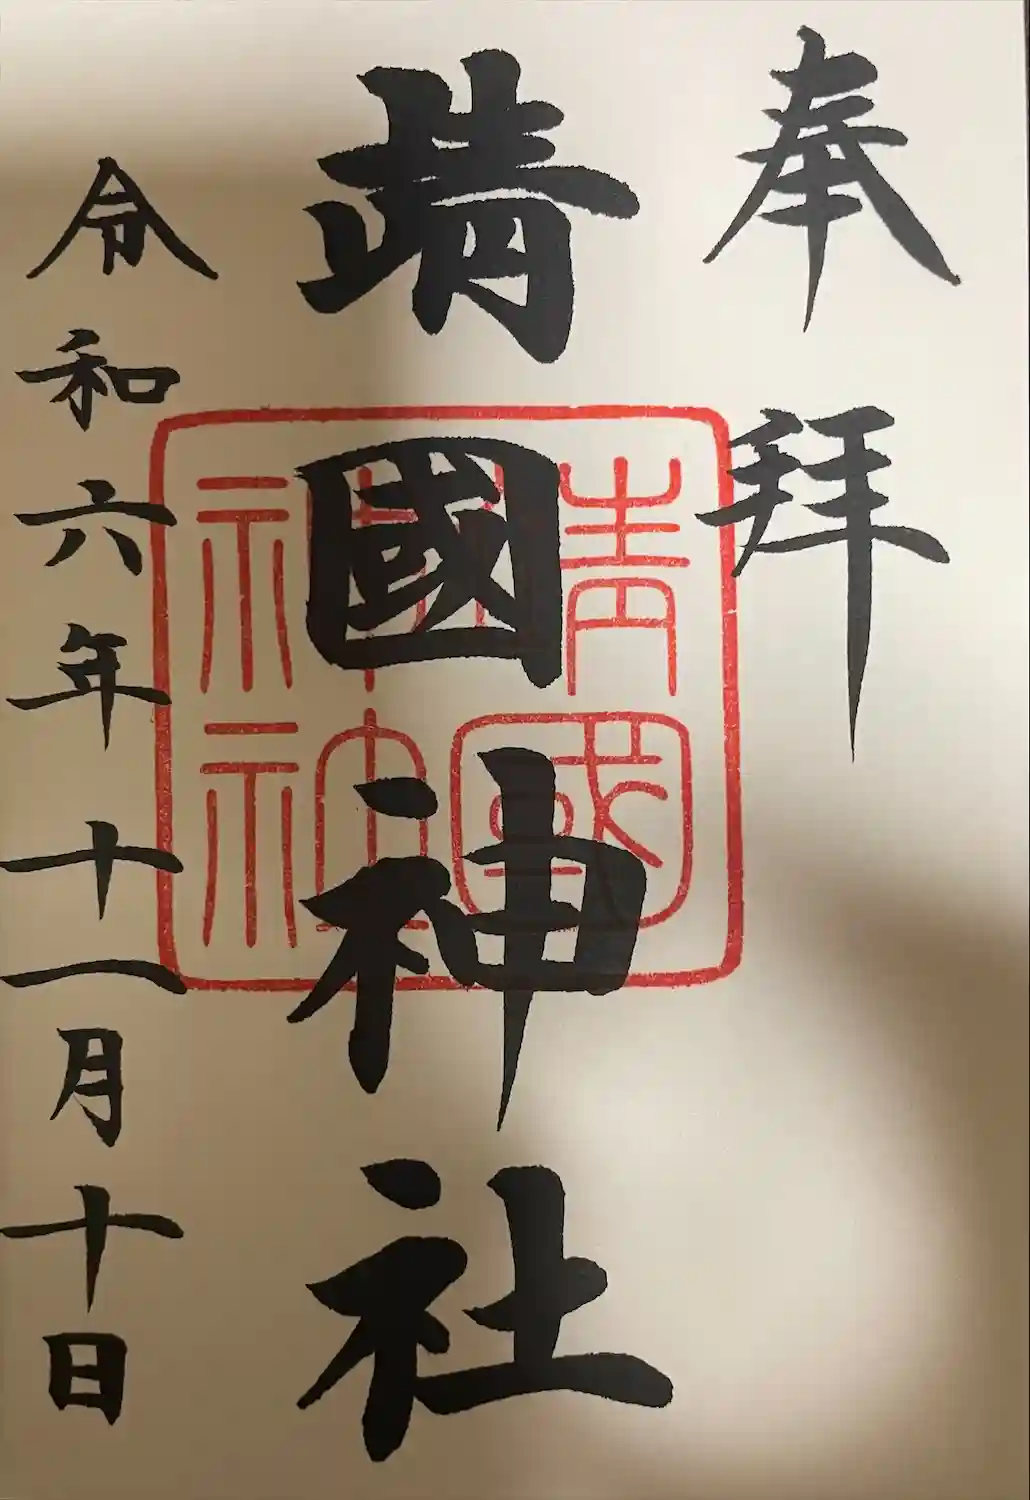 奉拝
靖國神社
靖國神社
令和六年十一月十日